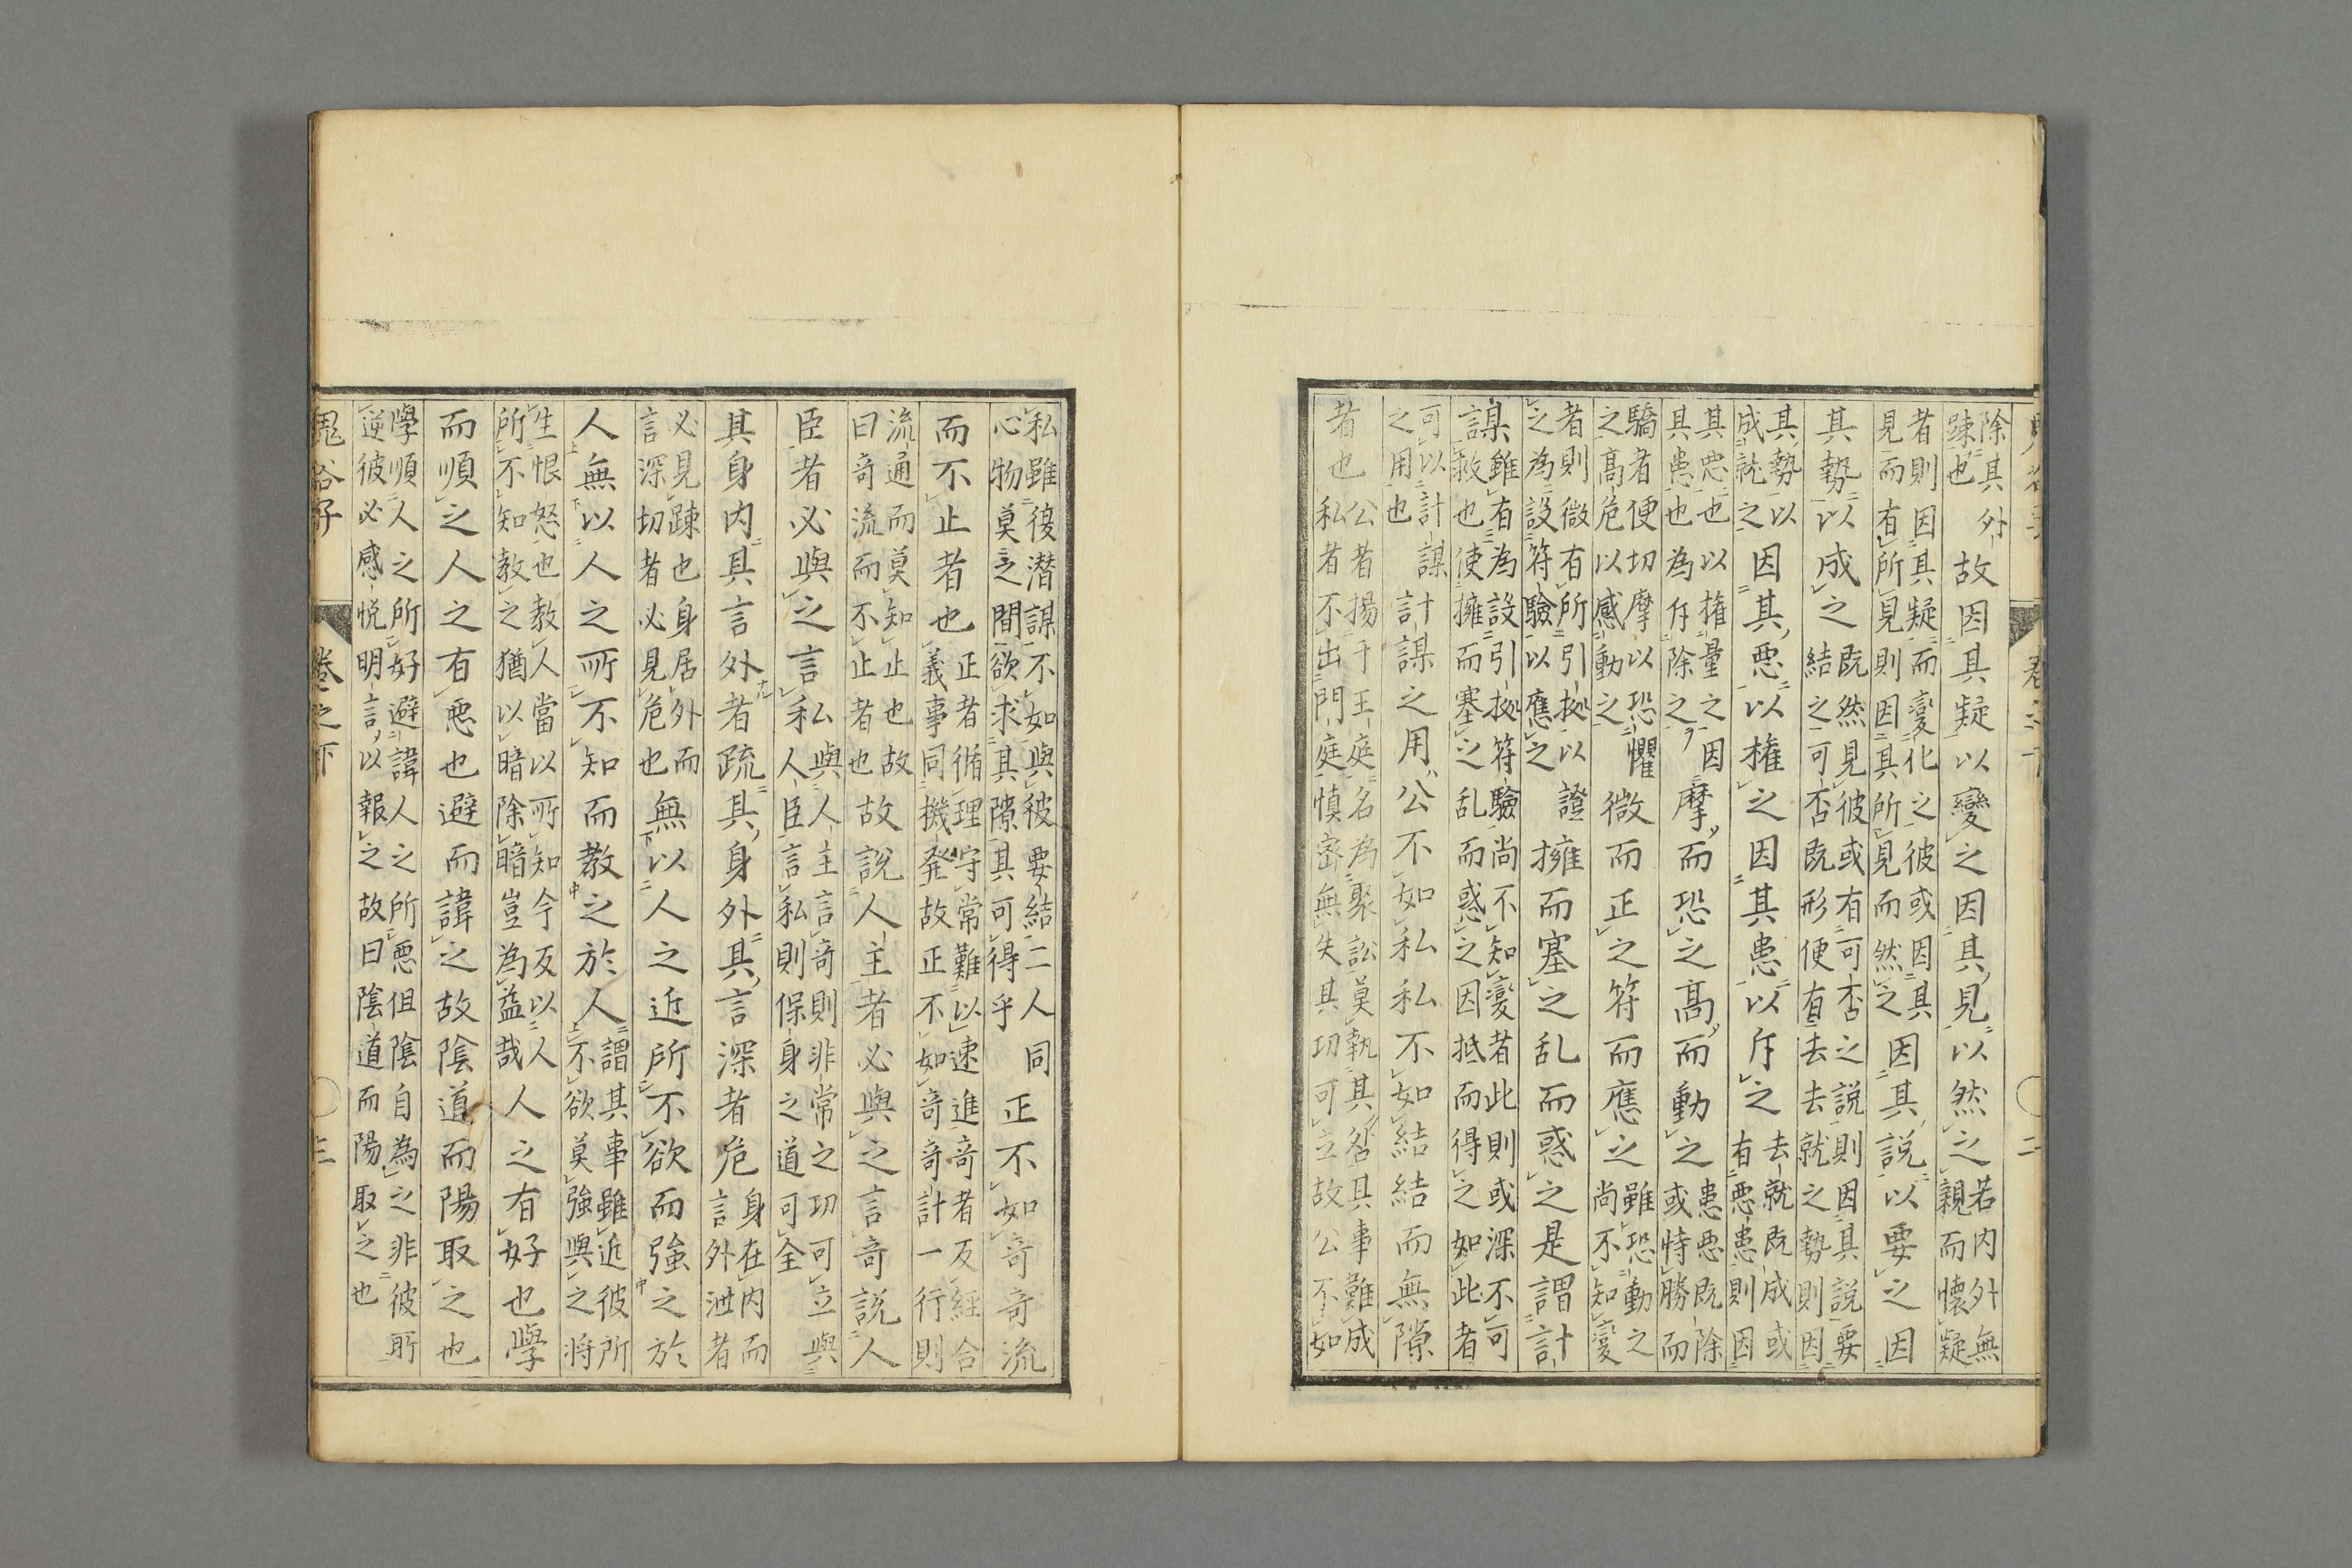 鬼谷子 卷之下 二
除其外
疎也
故因其疑以變之因其見以然之
若内外無
親而懷疑
者則因其疑而變化之彼或因其
見而有所見則因其所見而然之
因其説以要之因
其勢以成之
既然見彼或有可否之説則因其説要
結之可否既形便有去去就之勢則因
其勢以
成就之
因其悪以権之因其患以斥之
去就既成或
有悪患則因
其悪也以搉量之因
其患也為斥除之
摩而恐之高而動之
患悪既除
或恃勝而
驕者便切摩以恐懼
之高危以感動之
微而正之符而應之
雖恐動之
尚不知變
者則微有所引㧞以證
之為設符驗以應之
擁而塞之乱而惑之是謂計
謀
雖有為設引㧞符驗尚不知變者此則或深不可
救也使擁而塞之乱而惑之因抵而得之如此者
可以計謀
之用也
計謀之用公不如私私不如結結而無隙
者也
公者揚于王庭名為聚訟莫執其咎其事難成
私者不出門庭慎密無失其功可立故公不如
私雖復潜謀不如與彼要結二人同
心物莫之間欲求其隙其可得乎
正不如奇奇流
而不止者也
正者循理守常難以速進奇者反經合
義事同機発故正不如奇奇計一行則
流通而莫知止也故
曰奇流而不止者也
故説人主者必與之言奇説人
臣者必與之言私
與人主言奇則非常之功可立與
人臣言私則保身之道可全
其身内其言外者疏其身外其言深者危
身在内而
言外泄者
必見踈也身居外而
言深切者必見危也
無以人之近所不欲而強之於
人無以人之所不知而教之於人
謂其事雖近彼所
不欲莫強與之将
生恨怒也教人當以所知今反以人
所不知教之猶以暗除暗豈為益哉
人之有好也學
而順之人之有悪也避而諱之故陰道而陽取之也
學順人之所好避諱人之所悪但陰自為之非彼所
逆彼必感悦明言以報之故曰陰道而陽取之也
鬼谷子 卷之下 三